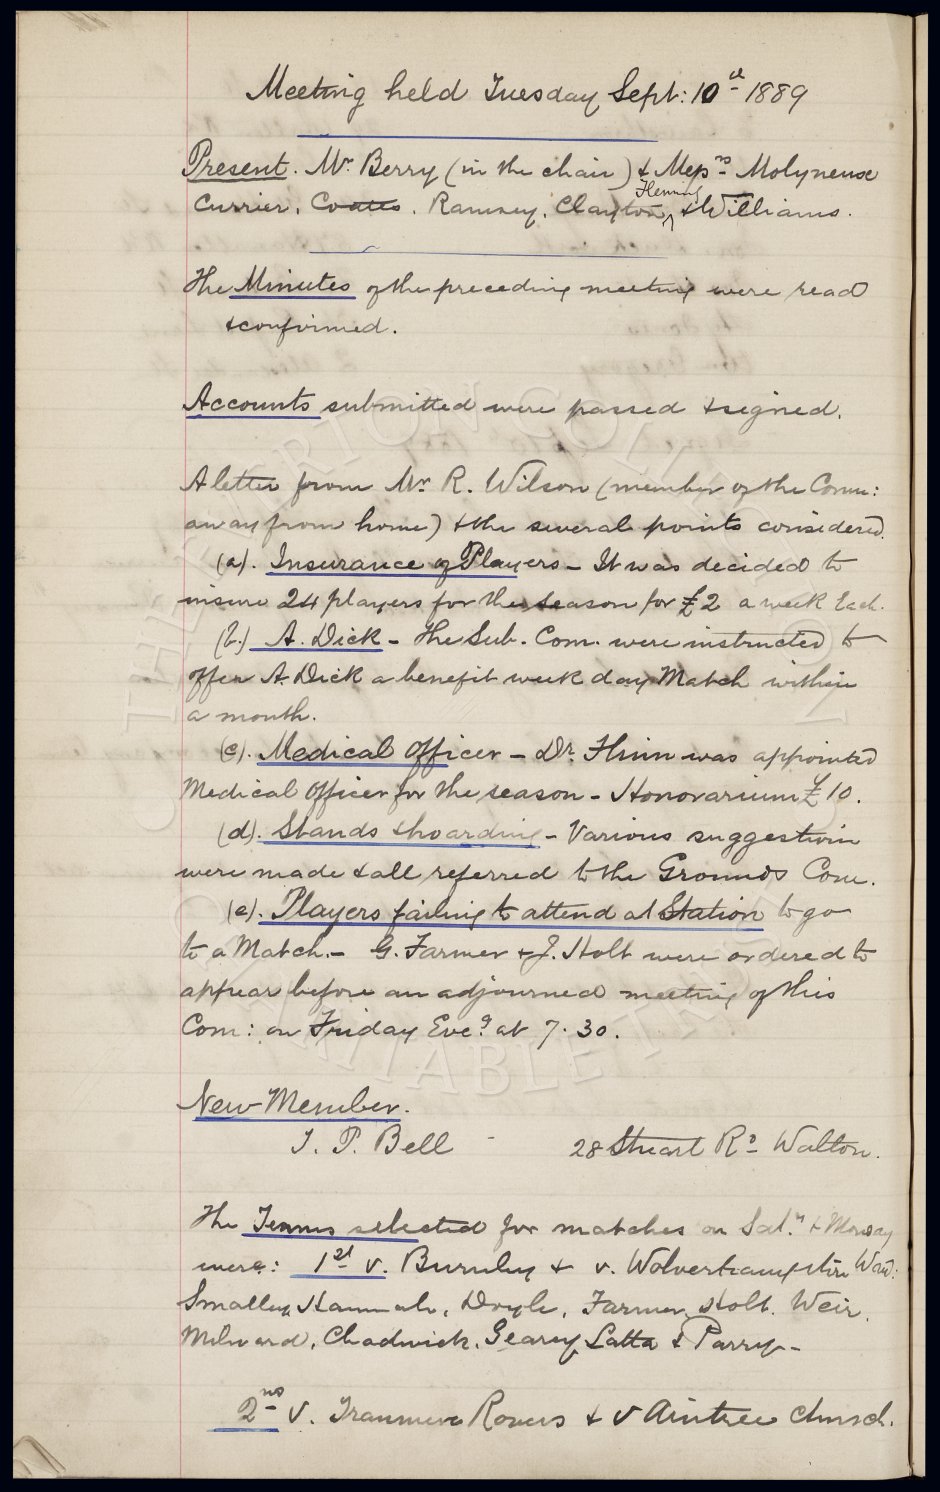 Meeting held Tuesday Sept: 10th 1889
Present. Mr Berry (in the chair) & Messrs Molyneux
Currier, Coates, Ramsey, Clayton, Fleming & Williams.
The Minutes of the preceding meeting were read
& confirmed.
Accounts submitted were passed & signed.
A letter from Mr R. Wilson (member of the Com:
away from home) & the several points considered.
(a). Insurance of Players - It was decided to
insure 24 players for the season for £2 a week each.
(b.) A. Dick - The Sub. Com. were instructed to
offer A. Dick a benefit week day Match within
a month.
(c). Medical Officer - Dr. Flinn was appointed
Medical Officer for the season - Honorarium £10.
(d). Stands & hoarding - Various suggestions
were made & all referred to the Grounds Com.
(e). Players failing to attend at Station to go
to a Match. - G. Farmer & J. Holt were ordered to
appear before an adjourned meeting of this
Com: on Friday Eveg. at 7.30.
New Member.
T. P. Bell - 28 Stuart Rd Walton.
The Teams selected for matches on Saty. & Monday
were: 1st v. Burnley & v. Wolverhampton Wand:
Smalley, Hannah, Doyle, Farmer, Holt. Weir.
Milward, Chadwick, Geary, Latta & Parry -
2nd v. Tranmere Rovers & v Aintree Church.
THE EVERTON COLLECTION
CHARITABLE TRUST